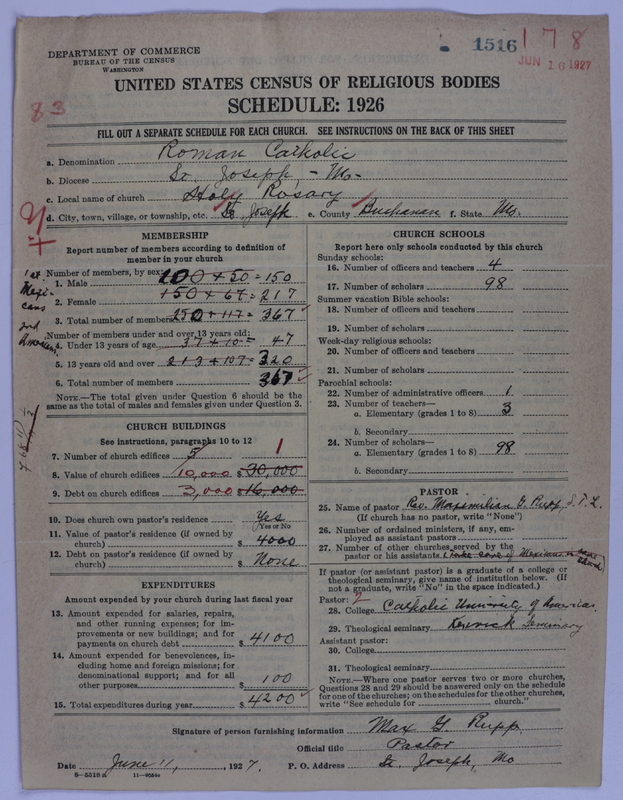 1516 178
JUN 16 1927
DEPARTMENT OF COMMERCE
BUREAU OF THE CENSUS
WASHINGTON
UNITED STATES CENSUS OF RELIGIOUS BODIES
83
SCHEDULE: 1926
FILL OUT A SEPARATE SCHEDULE FOR EACH CHURCH. SEE INSTRUCTIONS ON THE BACK OF THIS SHEET
a. Denomination Roman Catholic
b. Diocese St. Joseph, - Mo-
c. Local name of church Holy Rosary
d. City, town, village, or township, etc. St. Joseph e. County Buchanan f. State Mo.
MEMBERSHIP
Report number of members according to definition of
member in your church
Number of members, by sex:
1. Male 100 + 50 = 150
2. Female 150 + 67 = 217
3. Total number of members 250 + 117 = 367
Number of members under and over 13 years old:
4. Under 13 years of age 37 + 10 = 47
5. 13 years old and over 213 + 107 = 320
6. Total number of members 367
1st Mexi-
cans
2nd
American
NOTE.—The total given under Question 6 should be
same as the total of males and females given under Question 3.
CHURCH BUILDINGS
See instructions, paragraphs 10 to 12
7. Number of church edifices 5 1
8. Value of church edifices 10,000 $ 30,000
9. Debt on church edifices 3,000 $ 16,000
10. Does church own pastor's residence Yes
(Yes or No)
11. Value of pastor's residence (if owned by
church) $ 4000
12. Debt on pastor's residence (if owned by
church) $ None
EXPENDITURES
Amount expended by your church during last fiscal year
13. Amount expended for salaries, repairs,
and other running expenses; for im-
provements or new buildings; and for
payments on church debt $ 4100
14. Amount expended for benevolences, in-
cluding home and foreign missions; for
denominational support; and for all
other purposes $ 100
15. Total expenditures during year $ 4200
CHURCH SCHOOLS
Report here only schools conducted by this church
Sunday schools:
16. Number of officers and teachers 4
17. Number of scholars 98
Summer vacation Bible schools:
18. Number of officers and teachers
19. Number of scholars
Week-day religious schools:
20. Number of officers and teachers
21. Number of scholars
Parochial schools:
22. Number of administrative officers 1
23. Number of teachers—
a. Elementary (grades 1 to 8) 3
b. Secondary
24. Number of scholars—
a. Elementary (grades 1 to 8) 98
b. Secondary
PASTOR
25. Name of pastor Rev. Maximilian G. Rupp, S.T.L.
(If church has no pastor, write "None")
26. Number of ordained ministers, if any, em-
ployed as assistant pastors
27. Number of other churches served by the
pastor or his assistants I take care of Mexicans in same church
If pastor (or assistant pastor) is a graduate of a college or
theological seminary, give name of institution below. (If
not a graduate, write "No" in the space indicated.)
Pastor: 2
28. College Catholic University of America
29. Theological seminary Kenrick Seminary
Assistant pastor:
30. College
31. Theological seminary
NOTE.—Where one pastor serves two or more churches,
Questions 28 and 29 should be answered only on the schedule
for one of the churches; on the schedules for the other churches,
write "See schedule for church."
Signature of person furnishing information Max G. Rupp
Official title Pastor
Date June 11, 1927. P. O. Address St. Joseph, Mo
8—5518a 11—9054e